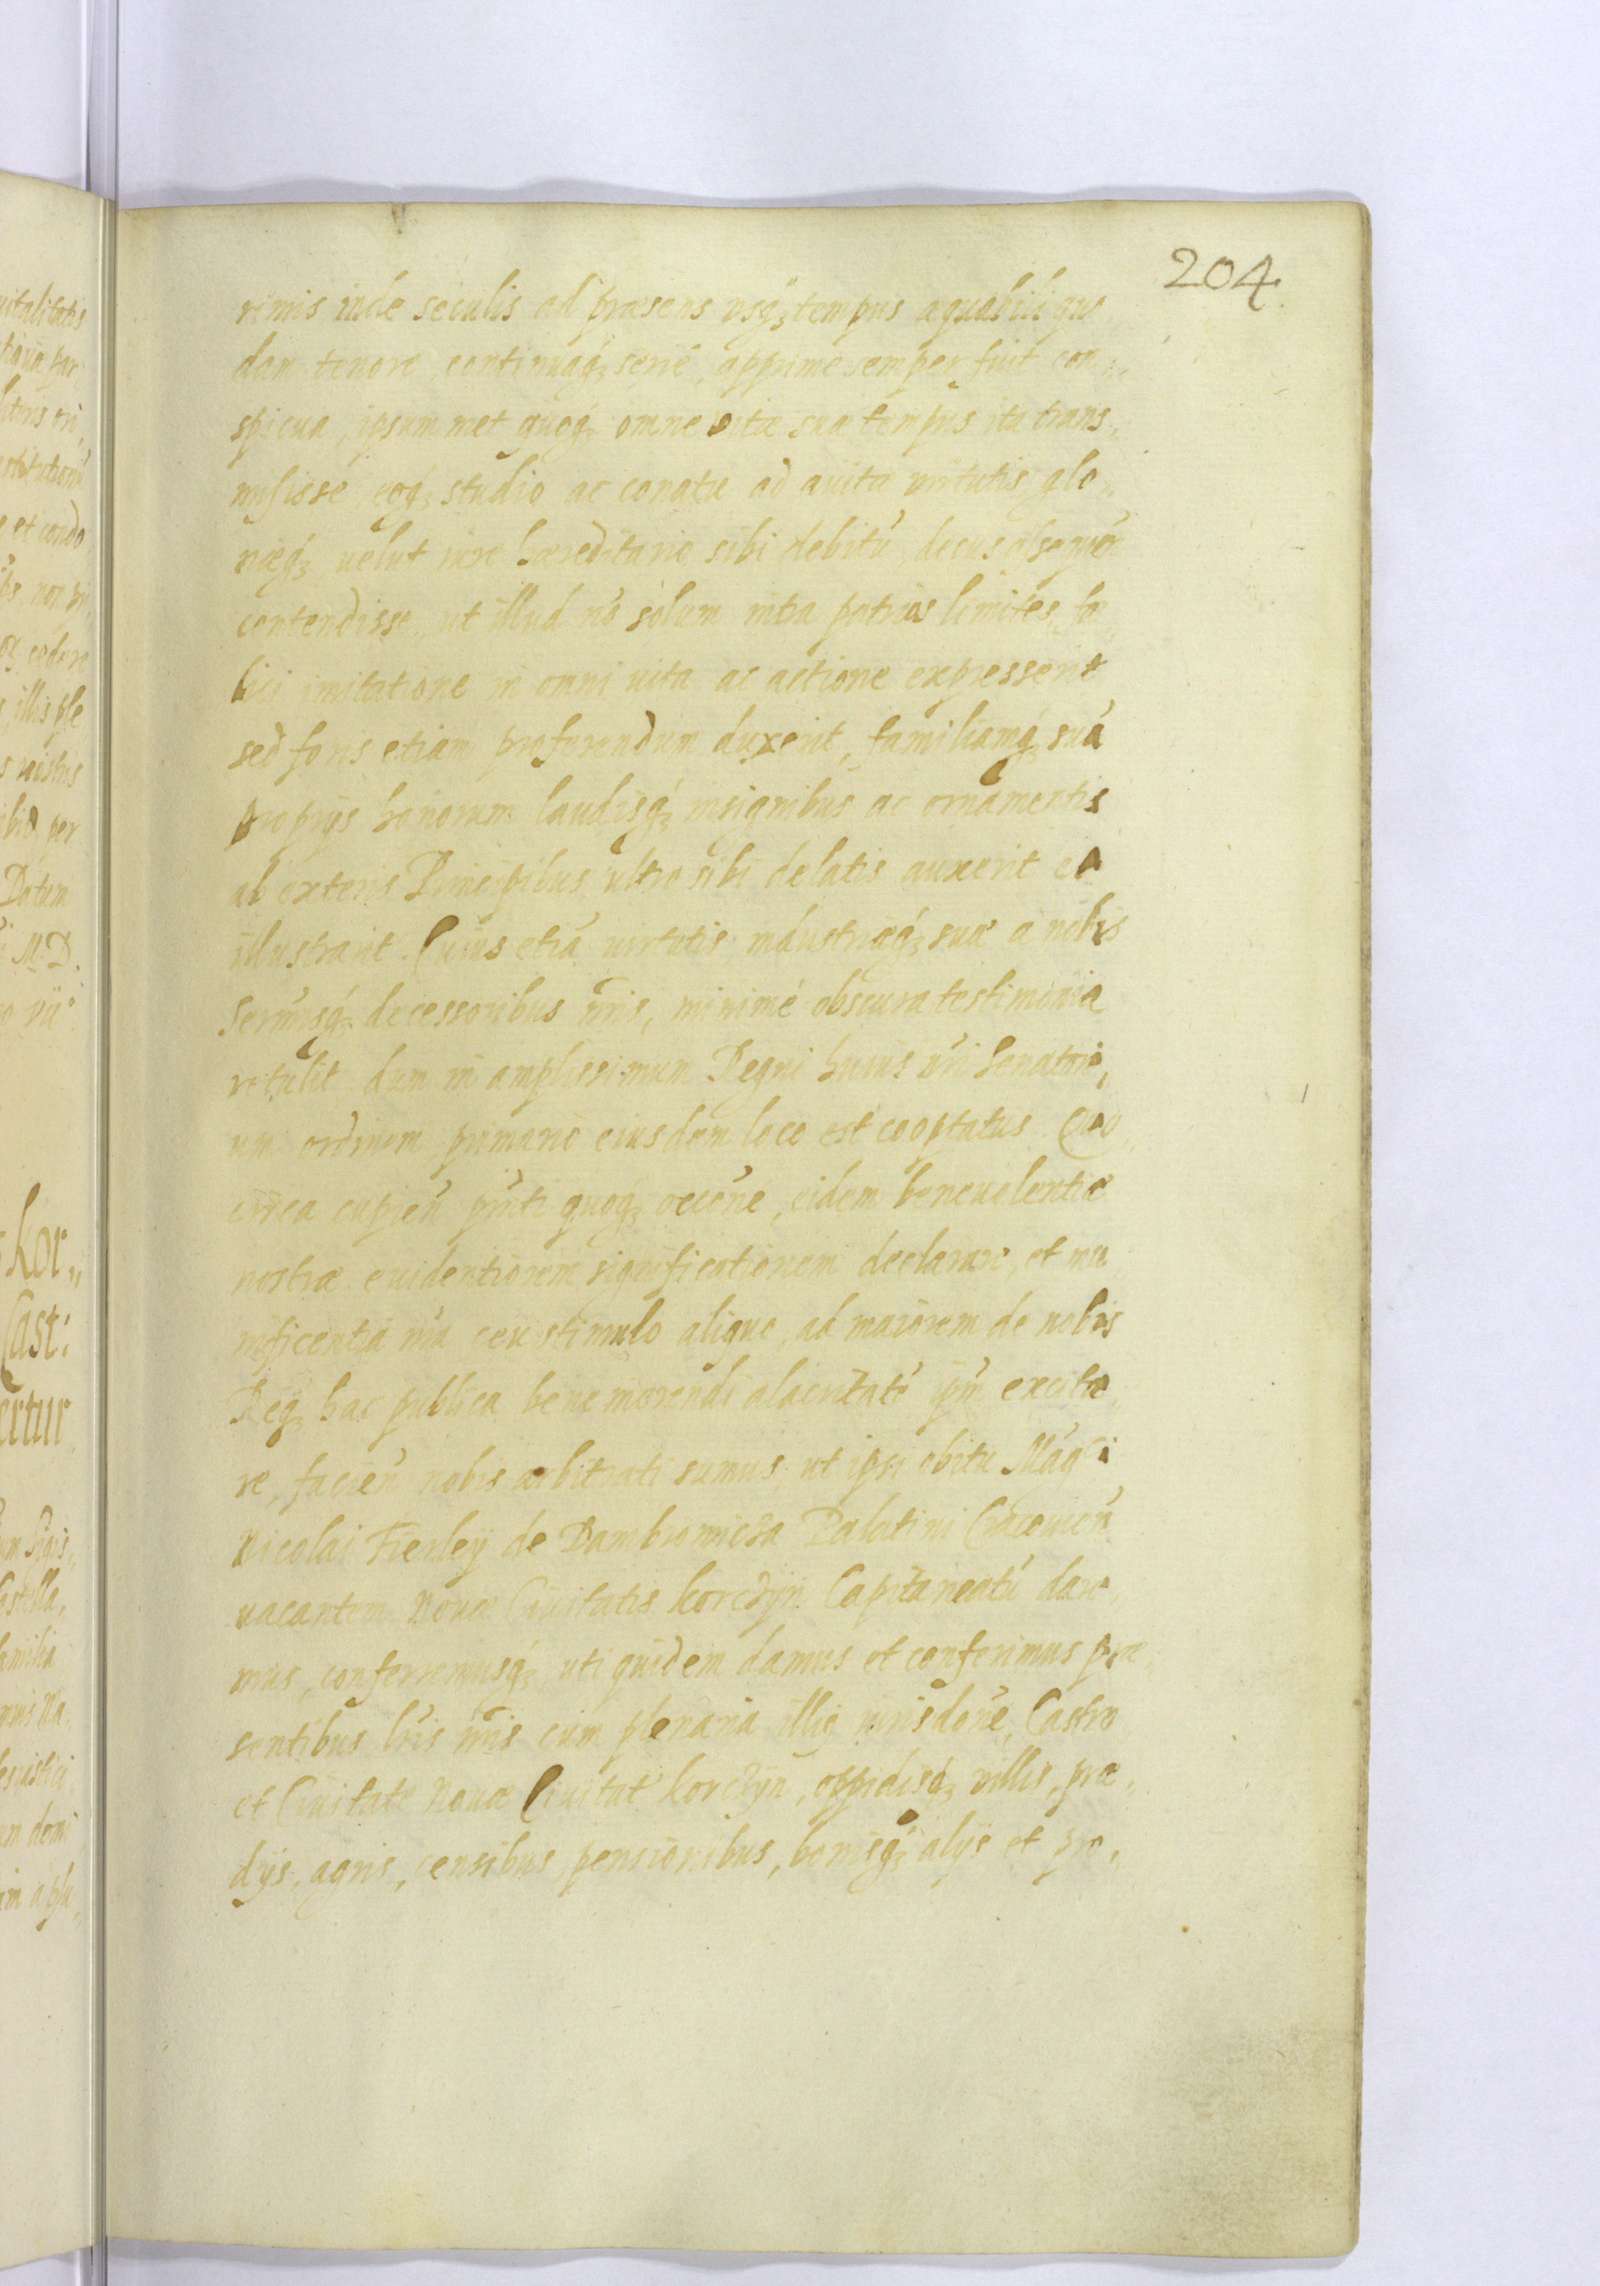 204
rimis indé seculis ad præsens vsq́ꝫ tempus æquabili quo
dam tenore continuaq́ꝫ serié, apprime semper fuit con„
spicua, ipsum met quoq́ꝫ omne vitæ suæ tempus ita trans„
misisse, eoq́ꝫ studio ac conatu ad auitæ virtutis glo„
riæq́ꝫ uelut iure hæreditario sibi debitú, decus
contendisse, ut illud nó solum intra patrios limites, fæ
lici imitatione in omni uita ac actione expresserit
sed foris etiam proferendum duxerit, familiamq́ꝫ suá
proprijs honorum laudisq́ꝫ insignibus ac ornamentis
ab exteris Principibus ultro sibi delatis auxerit et
illustrarit. Cuius etiá uirtutis, industriæq́ꝫ suæ a nobis
Serm̃isq́ꝫ decessoribus nr̃is, minimé obscura testimonia
retulit dum in amplissimum Regni huius nr̃i Senatori„
um ordinem primario eiusdem loco est cooptatus. Quo
circa cupień pñti quoq́ꝫ occõne, eidem beneuolentiæ
nostræ euidentiorem significationem declarare, et mu
nificentia nr̃a ceu stimulo aliquo, ad maiorem de nobis
Req́ꝫ hac publica bene merendi alacritaté ip̃m excita
re, facień nobis arbitrati sumus, ut ipsi obitu Mag̃ci
Nicolai Fierley de Dambrowicza Palatini Cracouień
uacantem Nouæ Ciuitatis Korczyn Capitaneatú dare„
mus, conferremusq́ꝫ, uti quidem damus et conferimus præ„
sentibus lr̃is nr̃is cum plenaria illiꝫ iurisdõne, Castro
et Ciuitate Nouæ Ciuitat̃ Korczyn, oppidisq́ꝫ villis, præ„
dijs, agris, censibus, pensionibus, bonisq́ꝫ alijs et pro„